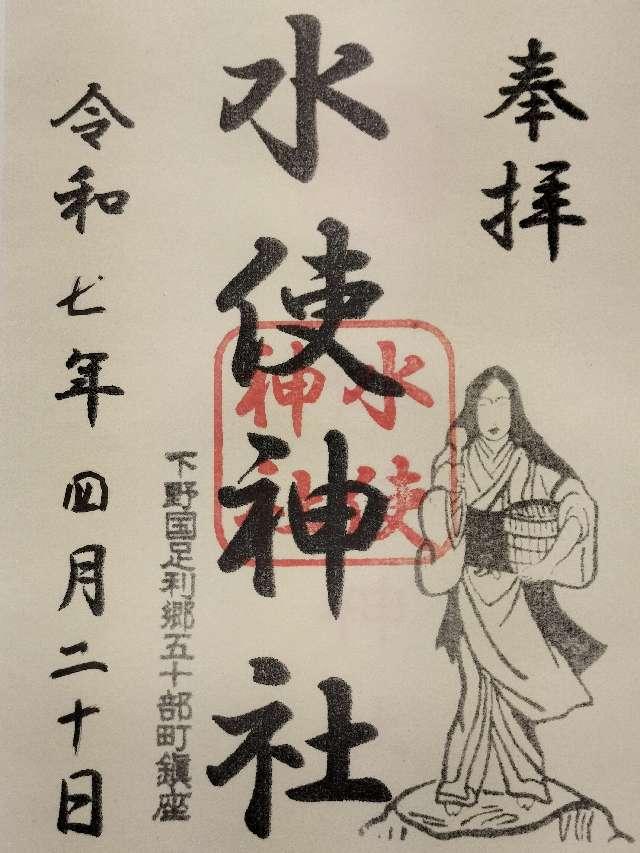 奉拝
水使神社
水使
神社
下野国足利郷五十部町鎮座
令和七年四月二十日